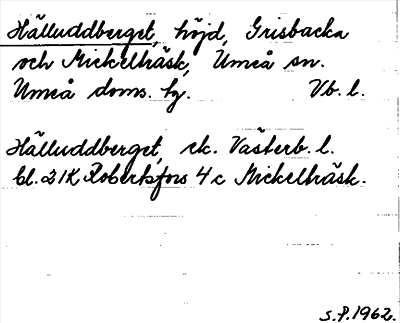 Hälluddberget, höjd, Grisbacka
och Mickelträsk, Umeå sn.
Umeå doms. hg. Vb. l.
Hälluddberget, ek. Västerb. l.
bl. 21K Robertsfors 4c Mickelträsk.
S.P. 1962.